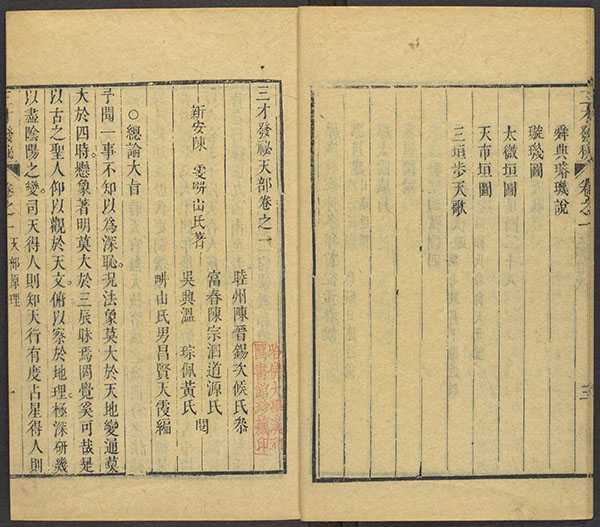 三才發秘 卷之一 三
舜典璿璣說
璇璣圖
太微垣圖
天市垣圖
三垣步天歌
三才發祕天部卷之一
新安陳 雯畊山氏著
睦州陳晉錫次候氏叅
富春陳宗泗道源氏
吳興溫 琮佩黃氏 閱
畊山氏男昌賢天霞編
○總論大旨
予聞一事不知以爲深恥。况法象莫大於天地變通莫
大於四時。懸象著明莫大於三辰。昧焉罔覺奚可哉。是
以古之聖人仰以觀於天文。俯以察於地理。極深研幾
以盡陰陽之變。司天得人則知天行有度占星得人則
三才發秘 卷之一 天部原理 一
哈佛大學漢和
圖書館珍藏印